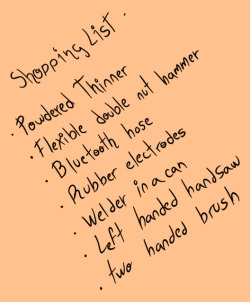 Shopping List.
· Powdered Thinner
· Flexible double nut hammer
· Bluetooth hose
· Rubber electrodes
· Welder in a can
· Left handed handsaw
· Two handed brush